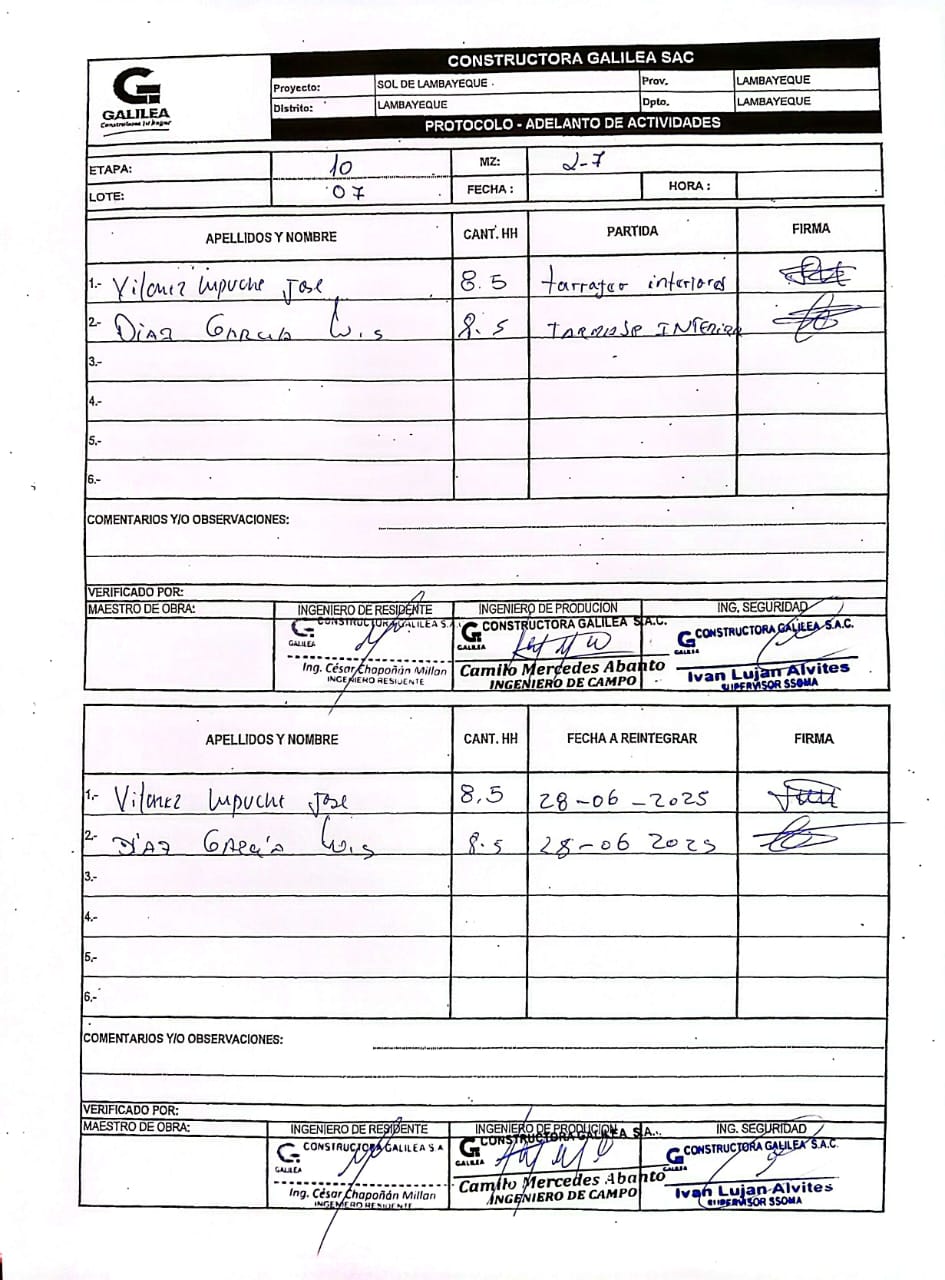 CONSTRUCTORA GALILEA SAC
GALILEA
Construimos tu hogar
Proyecto: SOL DE LAMBAYEQUE Prov. LAMBAYEQUE
Distrito: LAMBAYEQUE Dpto. LAMBAYEQUE
PROTOCOLO - ADELANTO DE ACTIVIDADES
ETAPA: 10 MZ: 2-7
LOTE: 07 FECHA : HORA :
APELLIDOS Y NOMBRE CANT. HH PARTIDA FIRMA
1.- Vilchez Lupuche Jose 8.5 tarrajeo interiores
2.- DIAZ GARCIA Luis 8.5 TARRAJEO INTERIOR
3.-
4.-
5.-
6.-
COMENTARIOS Y/O OBSERVACIONES:
VERIFICADO POR:
MAESTRO DE OBRA: INGENIERO DE RESIDENTE INGENIERO DE PRODUCION ING. SEGURIDAD
GALILEA CONSTRUCTORA GALILEA S.A. GALILEA CONSTRUCTORA GALILEA S.A.C. GALILEA CONSTRUCTORA GALILEA S.A.C.
Ing. César Chapoñán Millan Camilo Mercedes Abanto Ivan Lujan Alvites
INGENIERO RESIDENTE INGENIERO DE CAMPO SUPERVISOR SSOMA
APELLIDOS Y NOMBRE CANT. HH FECHA A REINTEGRAR FIRMA
1.- Vilchez Lupuche Jose 8.5 28-06-2025
2.- DÍAZ GARCÍA Luis 8.5 28-06 2025
3.-
4.-
5.-
6.-
COMENTARIOS Y/O OBSERVACIONES:
VERIFICADO POR:
MAESTRO DE OBRA: INGENIERO DE RESIDENTE INGENIERO DE PRODUCION ING. SEGURIDAD
GALILEA CONSTRUCTORA GALILEA S.A GALILEA CONSTRUCTORA GALILEA S.A. GALILEA CONSTRUCTORA GALILEA S.A.C.
Ing. César Chapoñán Millan Camilo Mercedes Abanto Ivan Lujan Alvites
INGENIERO RESIDENTE INGENIERO DE CAMPO SUPERVISOR SSOMA